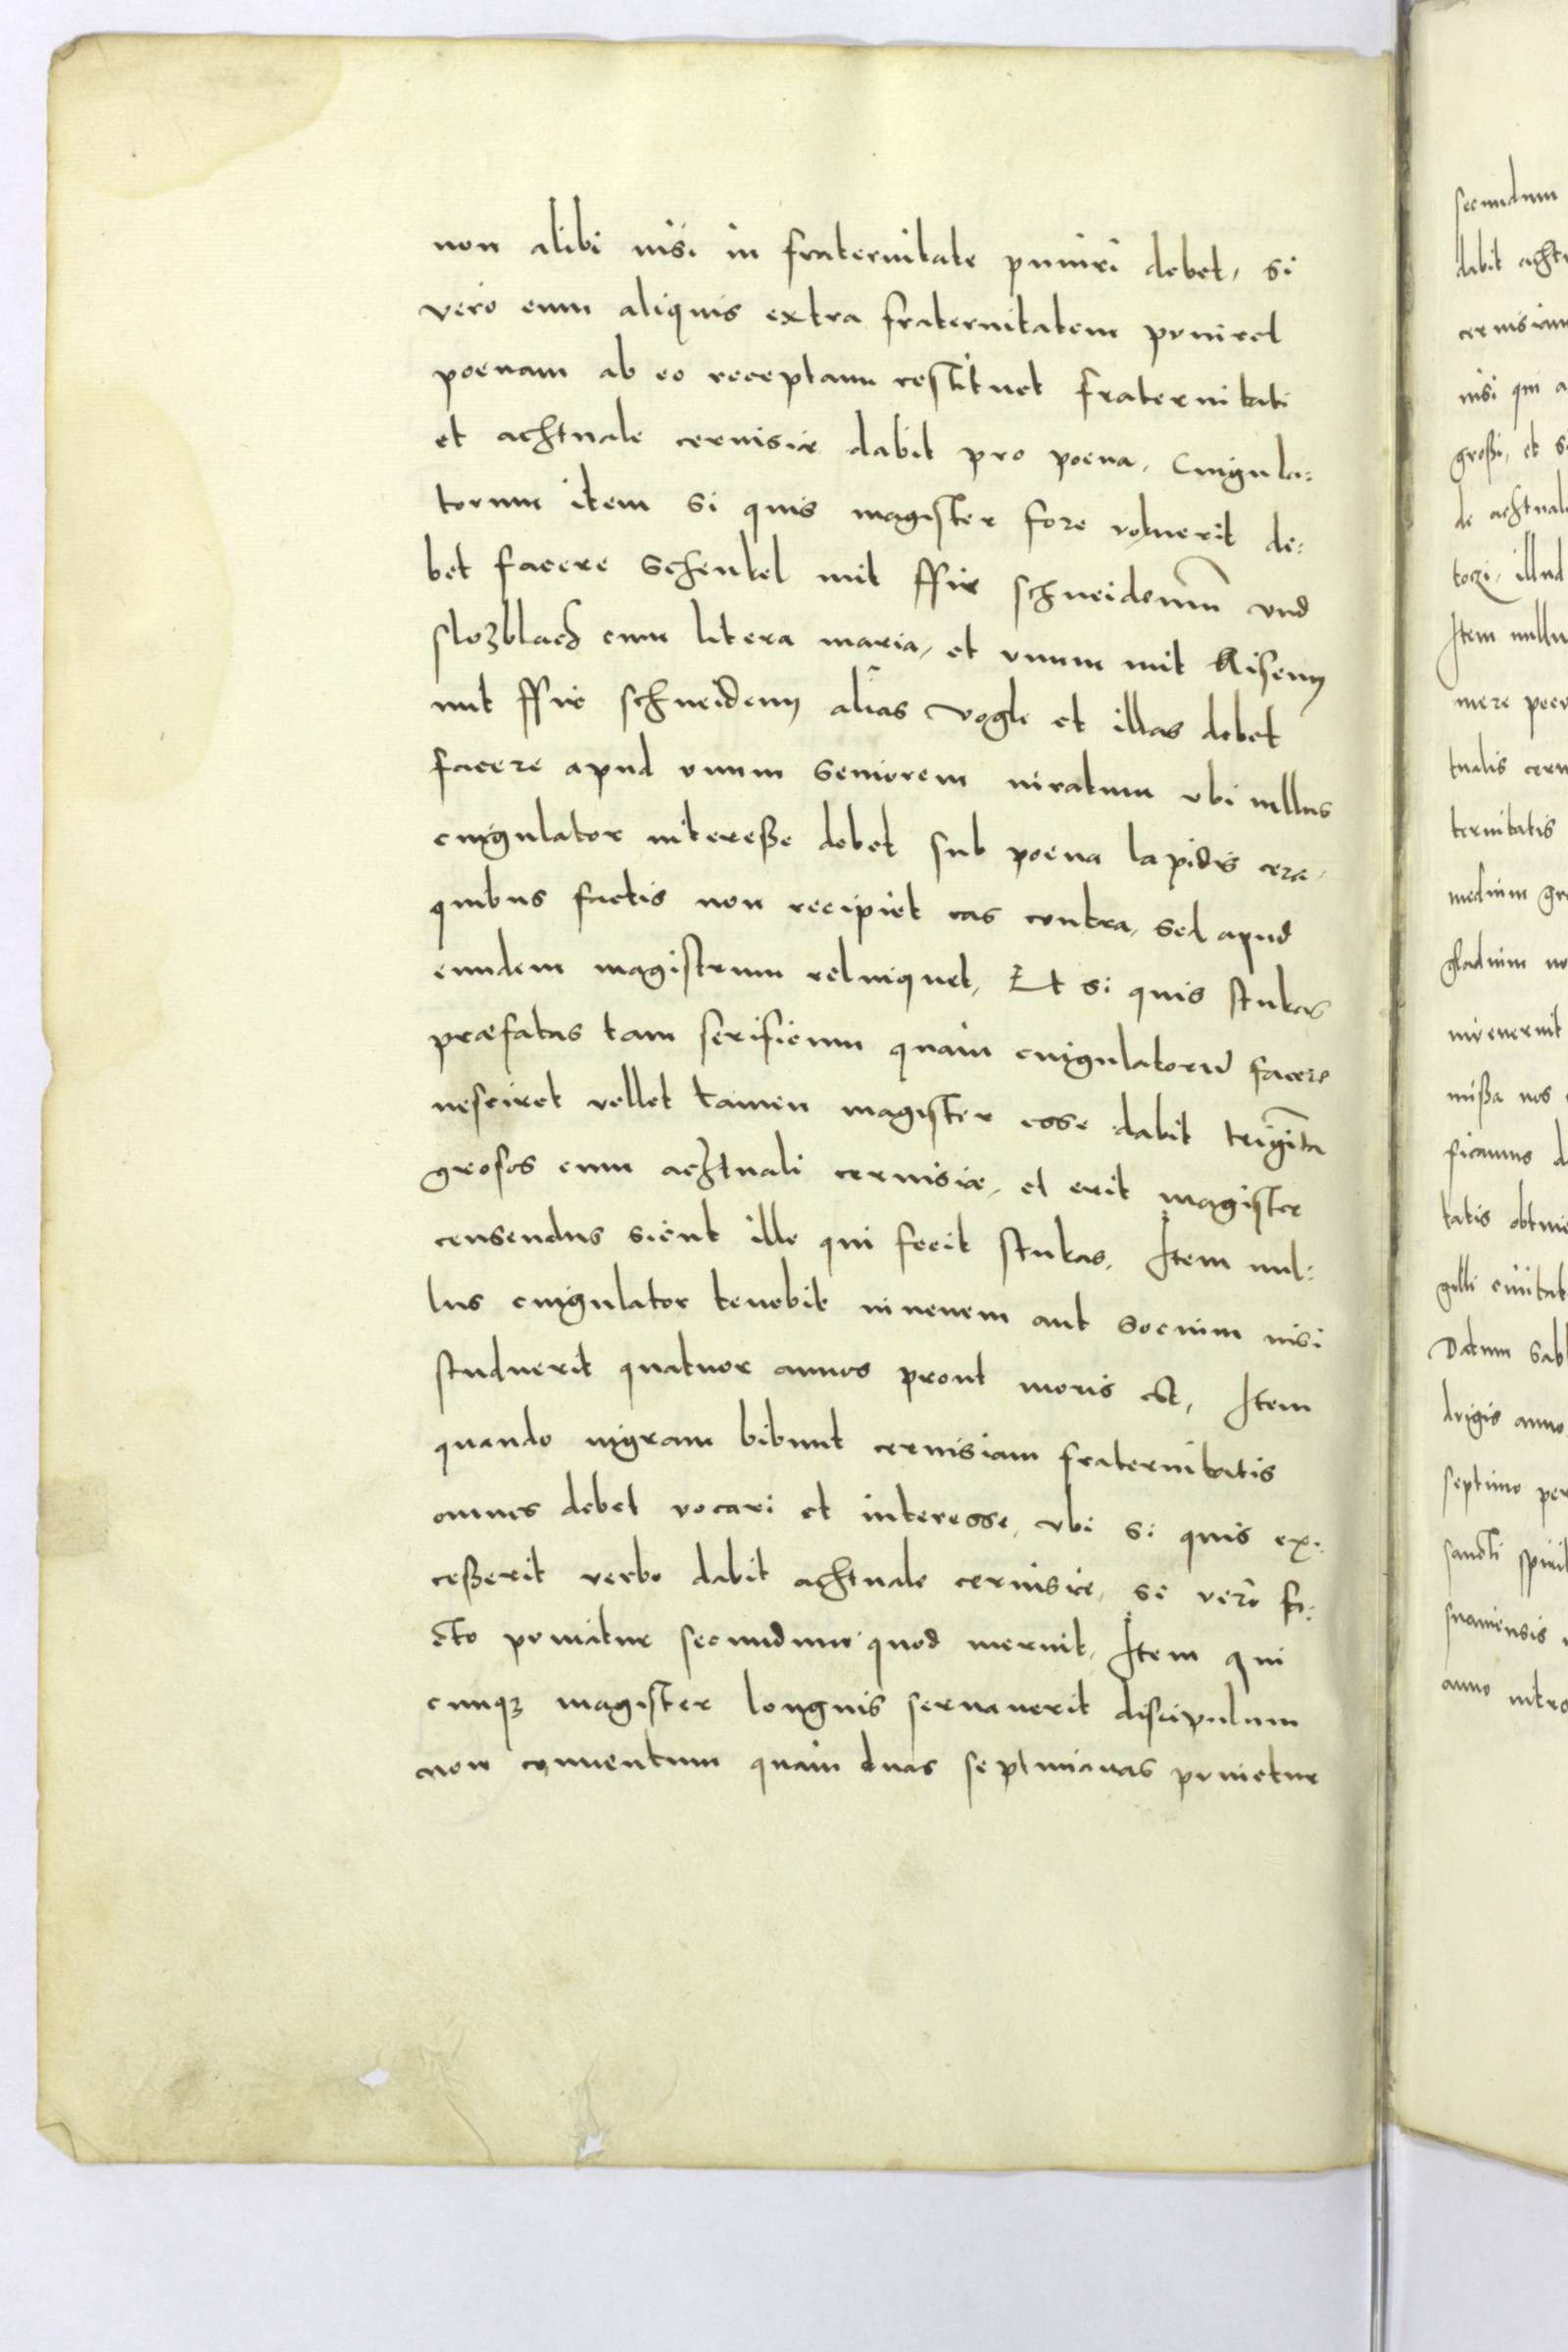 non alibi nisi in fraternitate puniri debet, si
vero eum aliquis extra fraternitatem puniret
poenam ab eo receptam restituet fraternitati
et achtuale ceruisiæ dabit pro poena, Cingula:
torum item si quis magister fore voluerit de:
bet facere schenkel mit ffir schneidenn vnd
sloʒblach cum litera maria, et vnum mit
mit ffir schneideny alias vogle et illas debet
facere apud vnum seniorem iuratum vbi nullus
cingulator intereße debet sub poena lapidis cere,
quibus factis non recipiet eas contra, sed apud
eundem magistrum relinquet, Et si quis stukas
præfatas tam serificum quam cingulatorũ facere
nesciret vellet tamen magister esse dabit triginta
grosos cum achtuali ceruisiæ, et erit magister
censendus sicut ille qui fecit stukas, Item nul:
lus cingulator tenebit iuuenem aut socium nisi
studuerit quatuor annos prout moris est, Item
quando nigram bibunt ceruisiam fraternitatis
omnes debet vocari et interesse, vbi si quis ex:
ceßerit verbo dabit achtuale ceruisiæ, si vero fa:
cto punitur secundum quod meruit, Item qui
cunqꝫ magister longius seruauerit discipulum
non conuentum quam duas septimanas punietur
secundum
dabit acht
ceruisiam
nisi qui a
großi, et s
de achtual
illud
Item nullu
mere
tualis ceru
ternitatis
medium gr
gladium no
inuenerit
mißa nos
ficamus d
tatis obtin
gilli ciuitat
Datum Sab
anno
septimo per
sancti spirit
anno intro